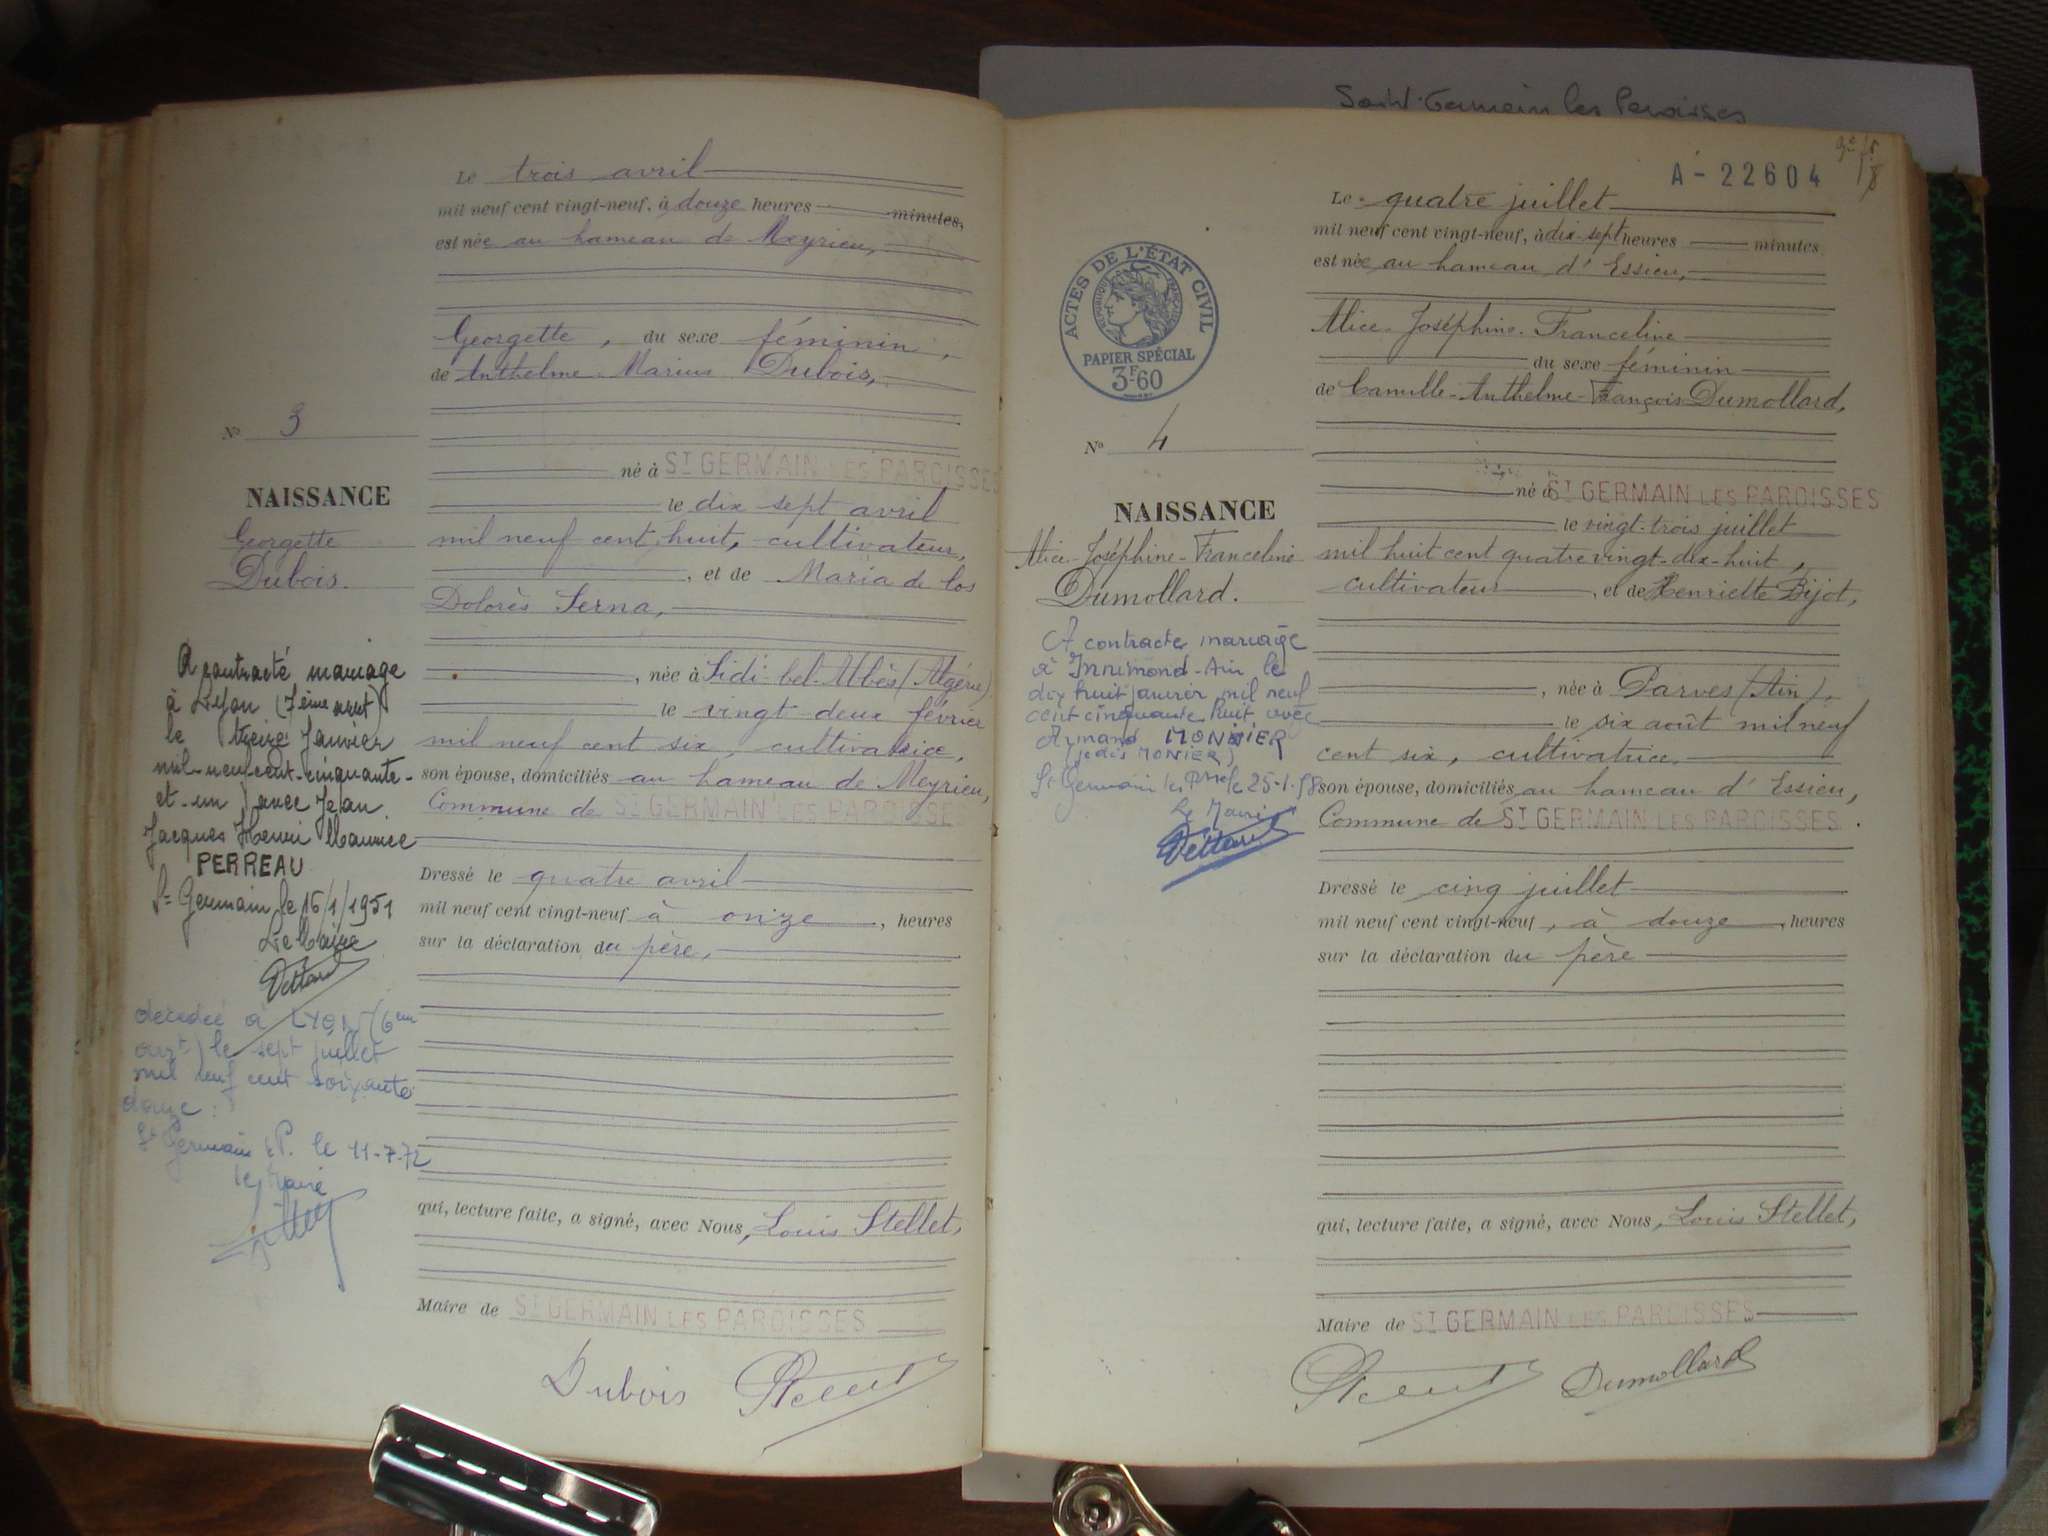 Saint-Germain les Paroisses
Le trois avril
mil neuf cent vingt-neuf, à douze heures minutes,
est née au hameau de Meyrieu,
Georgette, du sexe féminin,
de Anthelme-Marius Dubois,
né à ST GERMAIN LES PAROISSES
le dix sept avril
mil neuf cent huit, cultivateur,
, et de Maria de los
Dolorès Serna,
, née à Sidi-bel-Abbès (Algérie)
le vingt deux février
mil neuf cent six, cultivatrice,
son épouse, domiciliés au hameau de Meyrieu,
Commune de ST GERMAIN LES PAROISSES
Dressé le quatre avril
mil neuf cent vingt-neuf à onze, heures
sur la déclaration du père,
qui, lecture faite, a signé, avec Nous, Louis Stellet,
Maire de ST GERMAIN LES PAROISSES
Dubois
No 3
NAISSANCE
Georgette
Dubois.
A contracté mariage
à Lyon (7ème arrt)
le treize Janvier
mil-neuf-cent-cinquante-
et-un avec Jean
Jacques Henri Maurice
PERREAU
St Germain le 16/1/1951
Le Maire
décédée à LYON (6em
arrt) le sept juillet
mil neuf cent soixante
douze
St Germain l.P. le 11-7-72
le Maire
A-22604
Le quatre juillet
mil neuf cent vingt-neuf, à dix-sept heures minutes
est née au hameau d'Essieu,
Alice-Joséphine-Franceline
du sexe féminin
de Camille-Anthelme-François Dumollard,
né à ST GERMAIN LES PAROISSES
le vingt-trois juillet
mil huit cent quatre vingt-dix-huit,
cultivateur, et de Henriette Bijot,
, née à Parves (Ain),
le six août mil neuf
cent six, cultivatrice,
son épouse, domiciliés au hameau d'Essieu,
Commune de ST GERMAIN LES PAROISSES.
Dressé le cinq juillet
mil neuf cent vingt-neuf, à douze, heures
sur la déclaration du père
qui, lecture faite, a signé, avec Nous, Louis Stellet,
Maire de ST GERMAIN LES PAROISSES
Dumollard
ACTES DE L'ÉTAT CIVIL
RÉPUBLIQUE FRANÇAISE
PAPIER SPÉCIAL
3F60
No 4
NAISSANCE
Alice-Joséphine-Franceline
Dumollard.
A contracté mariage
à Innimond-Ain le
dix huit janvier mil neuf
cent cinquante huit avec
Armand MONNIER
MONIER)
St Germain les le 25-1-58
Le Maire